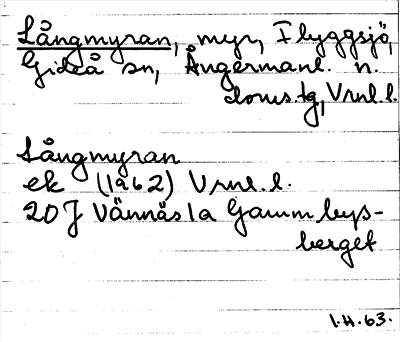 Långmyran, myr, Flyggsjö,
Gideå sn, Ångermanl. n.
doms.tg, Vrnl.l.
Långmyran
ek (1962) Vrnl.l.
20J Vännäs 1a Gammbys-
berget
I.H.63.